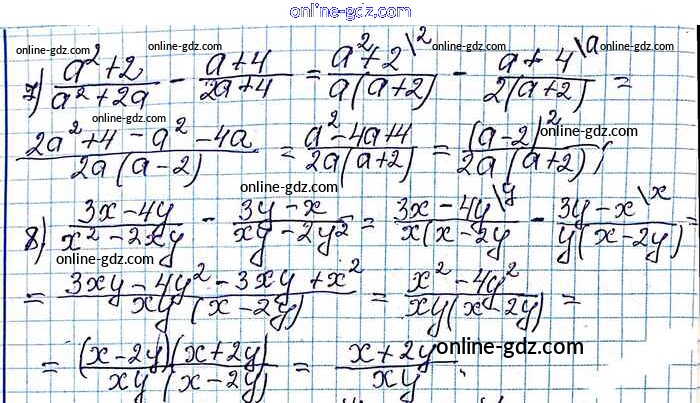 online-gdz.com
online-gdz.com online-gdz.com online-gdz.com
7) (a²+2)/(a²+2a) - (a+4)/(2a+4) = (a²+2\2)/(a(a+2)) - (a+4\a)/(2(a+2)) =
online-gdz.com online-gdz.com
(2a²+4-a²-4a)/(2a(a-2)) = (a²-4a+4)/(2a(a+2)) = (a-2)²/(2a(a+2));
online-gdz.com
8) (3x-4y)/(x²-2xy) - (3y-x)/(xy-2y²) = (3x-4y\y)/(x(x-2y) - (3y-x\x)/(y(x-2y)) =
online-gdz.com online-gdz.com
= (3xy-4y²-3xy+x²)/(xy(x-2y)) = (x²-4y²)/(xy(x-2y)) =
= ((x-2y)(x+2y))/(xy(x-2y)) = (x+2y)/(xy).
online-gdz.com